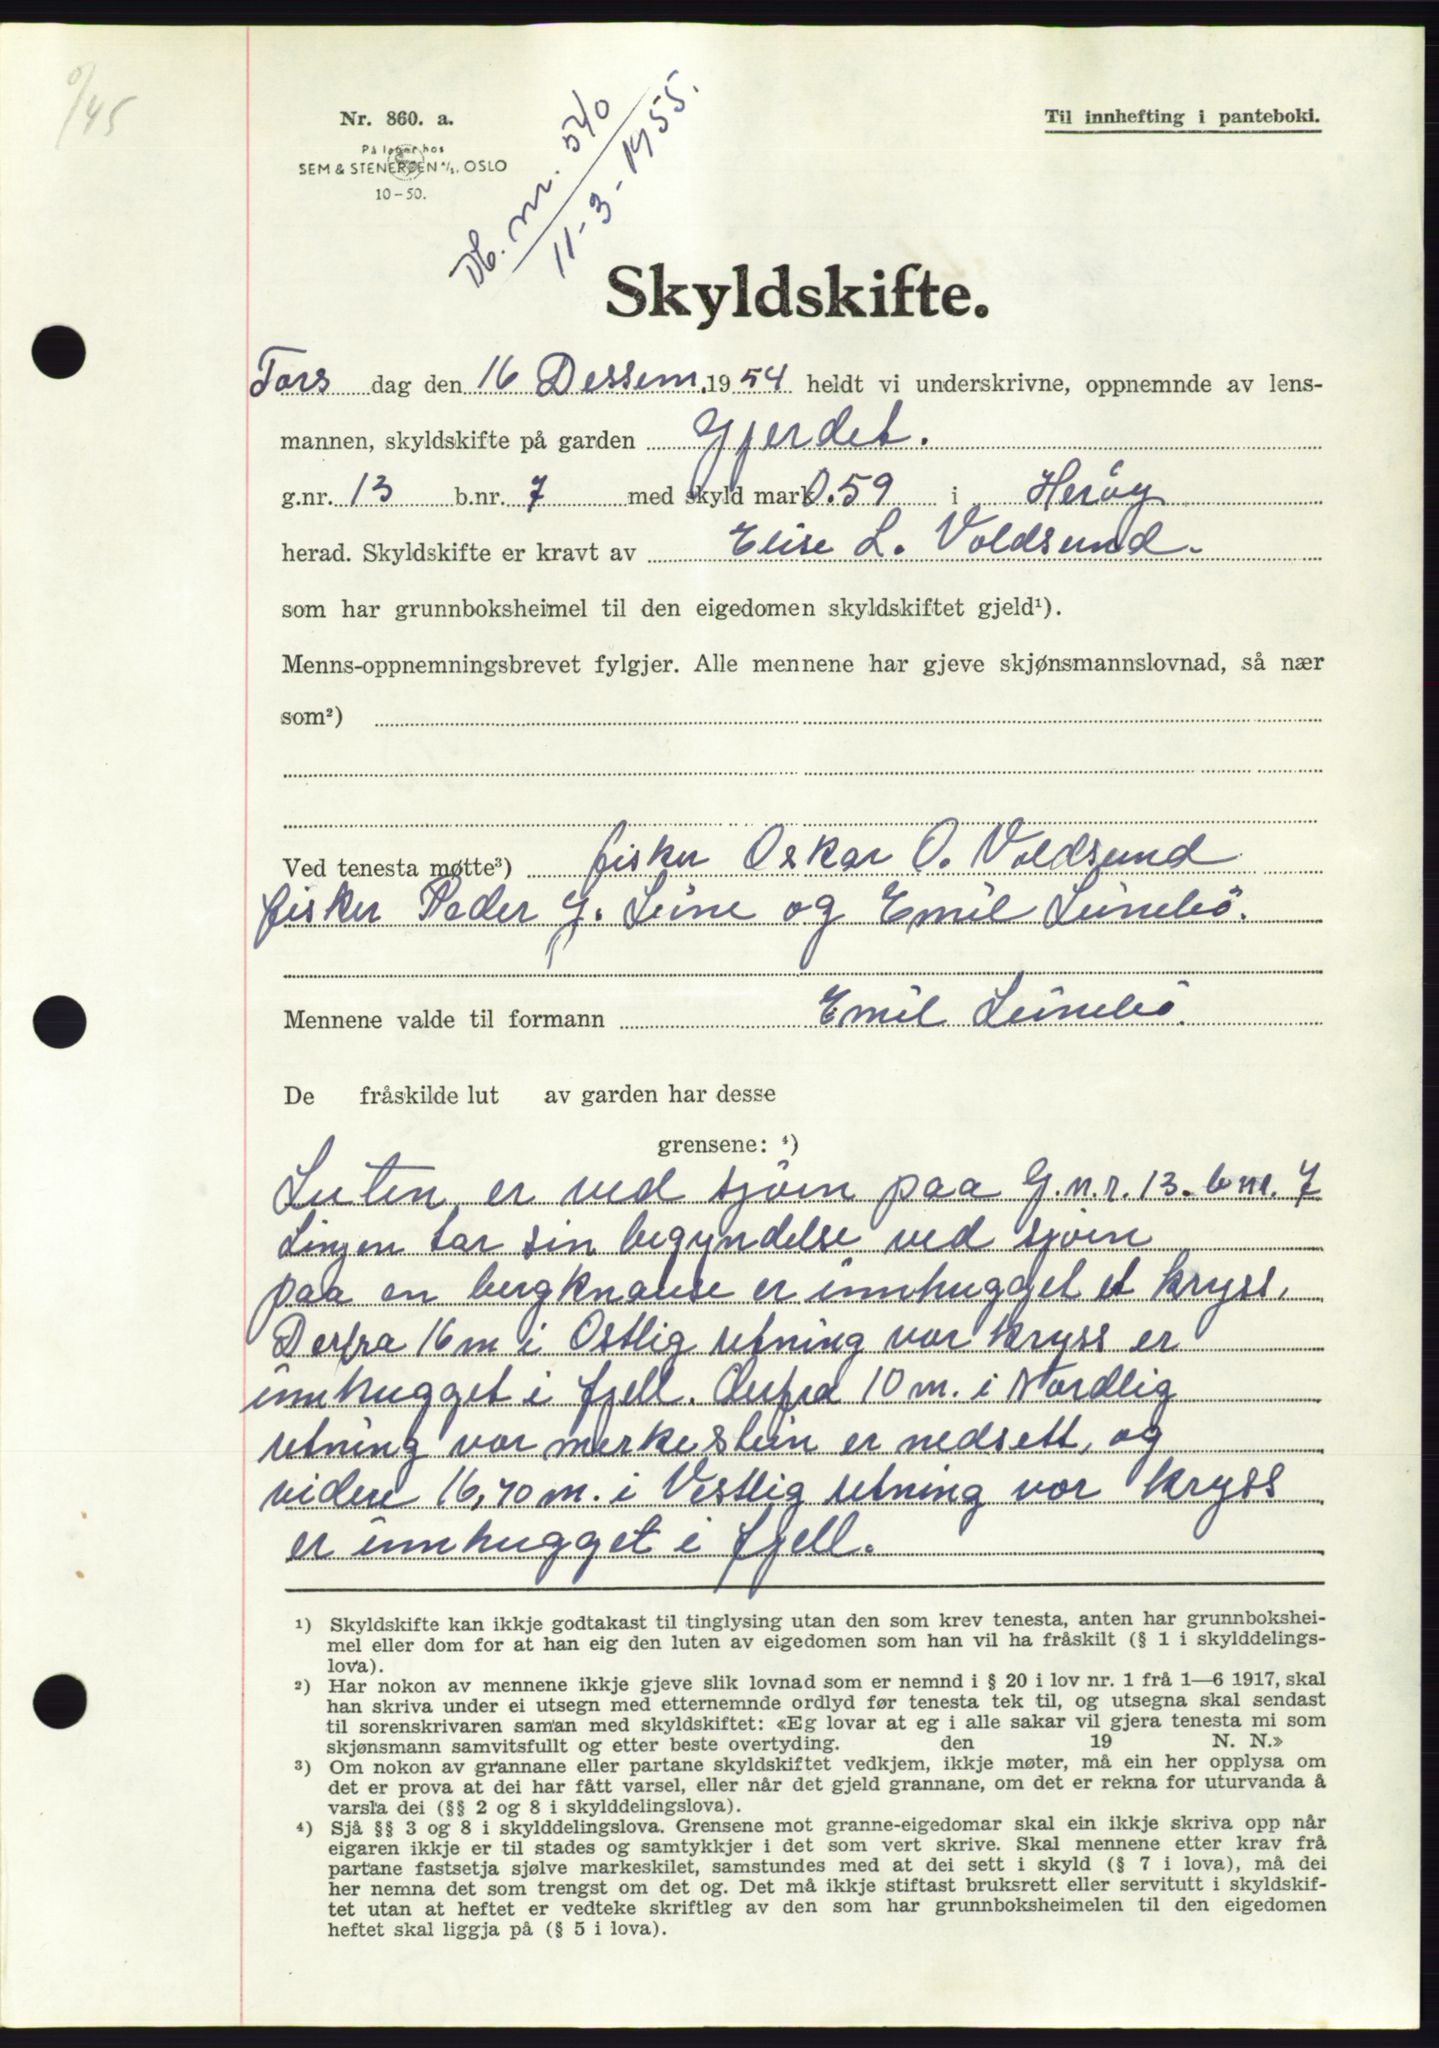 0/45
Nr. 860. a.
På lager hos
SEM & STENERSEN A/S, OSLO
10-50.
Db. nr. 540
11-3-1955.
Til innhefting i panteboki.
Skyldskifte.
Tors dag den 16 Dessem. 1954 heldt vi underskrivne, oppnemnde av lens-
mannen, skyldskifte på garden Gjerdet.
g.nr. 13 b.nr. 7 med skyld mark 0.59 i Herøy
herad. Skyldskifte er kravt av Elise L. Voldsund.
som har grunnboksheimel til den eigedomen skyldskiftet gjeld¹).
Menns-oppnemningsbrevet fylgjer. Alle mennene har gjeve skjønsmannslovnad, så nær
som²)
Ved tenesta møtte³) fisker Oskar O. Voldsund
fisker Peder G. Leine og Emil Leinebö.
Mennene valde til formann Emil Leinebö.
De fråskilde lut av garden har desse
grensene: ⁴)
Luten er ved sjöen paa G.n.r. 13. b nr. 7
Linjen tar sin begyndelse ved sjöen
paa en bergknause er innhugget et kryss.
Derfra 16 m i Ostlig retning vor kryss er
innhugget i fjell. Derfra 10 m. i Nordlig
retning vor merkestein er nedsett, og
videre 16,40 m. i Vestlig retning vor kryss
er innhugget i fjell.
¹) Skyldskifte kan ikkje godtakast til tinglysing utan den som krev tenesta, anten har grunnbokshei-
mel eller dom for at han eig den luten av eigedomen som han vil ha fråskilt (§ 1 i skylddelings-
lova).
²) Har nokon av mennene ikkje gjeve slik lovnad som er nemnd i § 20 i lov nr. 1 frå 1—6 1917, skal
han skriva under ei utsegn med etternemnde ordlyd før tenesta tek til, og utsegna skal sendast
til sorenskrivaren saman med skyldskiftet: «Eg lovar at eg i alle sakar vil gjera tenesta mi som
skjønsmann samvitsfullt og etter beste overtyding. den 19 N. N.»
³) Om nokon av grannane eller partane skyldskiftet vedkjem, ikkje møter, må ein her opplysa om
det er prova at dei har fått varsel, eller når det gjeld grannane, om det er rekna for uturvanda å
varsla dei (§§ 2 og 8 i skylddelingslova).
⁴) Sjå §§ 3 og 8 i skylddelingslova. Grensene mot granne-eigedomar skal ein ikkje skriva opp når
eigaren ikkje er til stades og samtykkjer i det som vert skrive. Skal mennene etter krav frå
partane fastsetja sjølve markeskilet, samstundes med at dei sett i skyld (§ 7 i lova), må dei
her nemna det som trengst om det og. Det må ikkje stiftast bruksrett eller servitutt i skyldskif-
tet utan at heftet er vedteke skriftleg av den som har grunnboksheimelen til den eigedomen
heftet skal liggja på (§ 5 i lova).